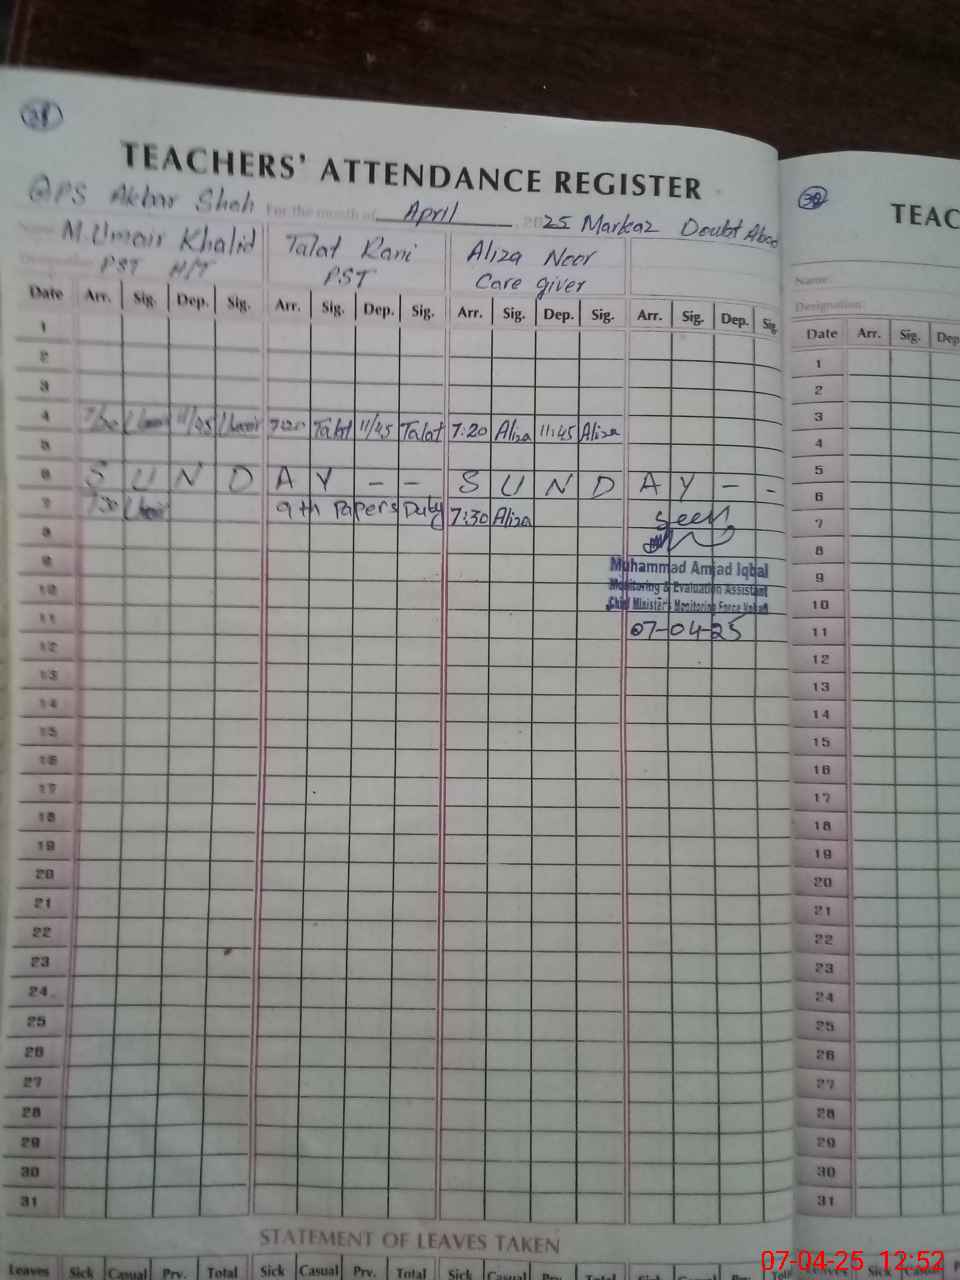 28
TEACHERS' ATTENDANCE REGISTER
GPS Akbar Shah For the month of April 2025 Markaz Doubt Abad
Name M. Umair Khalid Talat Rani Aliza Noor
PST H/T PST Care giver
Date Arr. Sig. Dep. Sig. Arr. Sig. Dep. Sig. Arr. Sig. Dep. Sig. Arr. Sig. Dep. Sig.
1
2
3
4 7/20 Umair 11/45 Umair 7:20 Talat 11/45 Talat 7:20 Aliza 11:45 Aliza
5
6 S U N D A Y - - S U N D A Y - -
7 7:30 Umair 9th Papers Duty 7:30 Aliza Seen
8
9 Muhammad Amjad Iqbal
10 Monitoring & Evaluation Assistant
Chief Minister's Monitoring Force
11 07-04-25
12
13
14
15
16
17
18
19
20
21
22
23
24
25
26
27
28
29
30
31
STATEMENT OF LEAVES TAKEN
Leaves Sick Casual Prv. Total Sick Casual Prv. Total Sick Casual Prv. Total Sick Casual Prv. Total
TEAC
Name:
Designation
Date Arr. Sig. Dep
1
2
3
4
5
6
7
8
9
10
11
12
13
14
15
16
17
18
19
20
21
22
23
24
25
26
27
28
29
30
31
Leaves Sick Casual
07-04-25 12:52